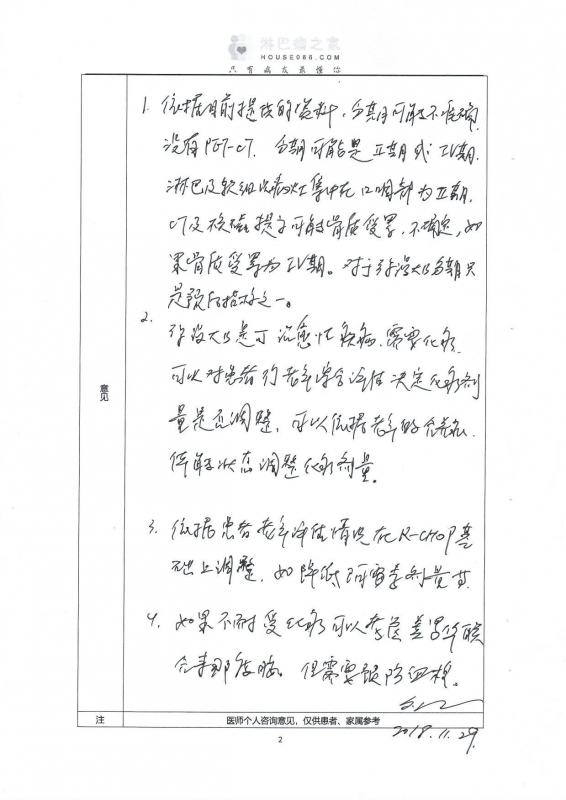 淋巴瘤之家
HOUSE086.COM
只有病友最懂你
1. 依据目前提供的资料,分期可能不准确
没有PET-CT. 分期可能是Ⅱ期或Ⅳ期.
淋巴及软组织病灶集中在口咽部为Ⅱ期.
CT及核磁提示可能骨质受累,不确定,如
果骨质受累为Ⅳ期。对于弥漫大B分期只
是预后指标之一。
2. 弥漫大B是可治愈性疾病,需要化疗.
可以对患者行老年学会评估决定化疗剂
量是否调整,可以依据老年的合并症、
伴随状态调整化疗剂量。
意见
3. 依据患者老年评估情况在R-CHOP基
础上调整,如降低阿霉素剂量等
4. 如果不耐受化疗可以考虑美罗华联
合来那度胺。但需要预防血栓。
2018.11.29.
注
医师个人咨询意见,仅供患者、家属参考
2